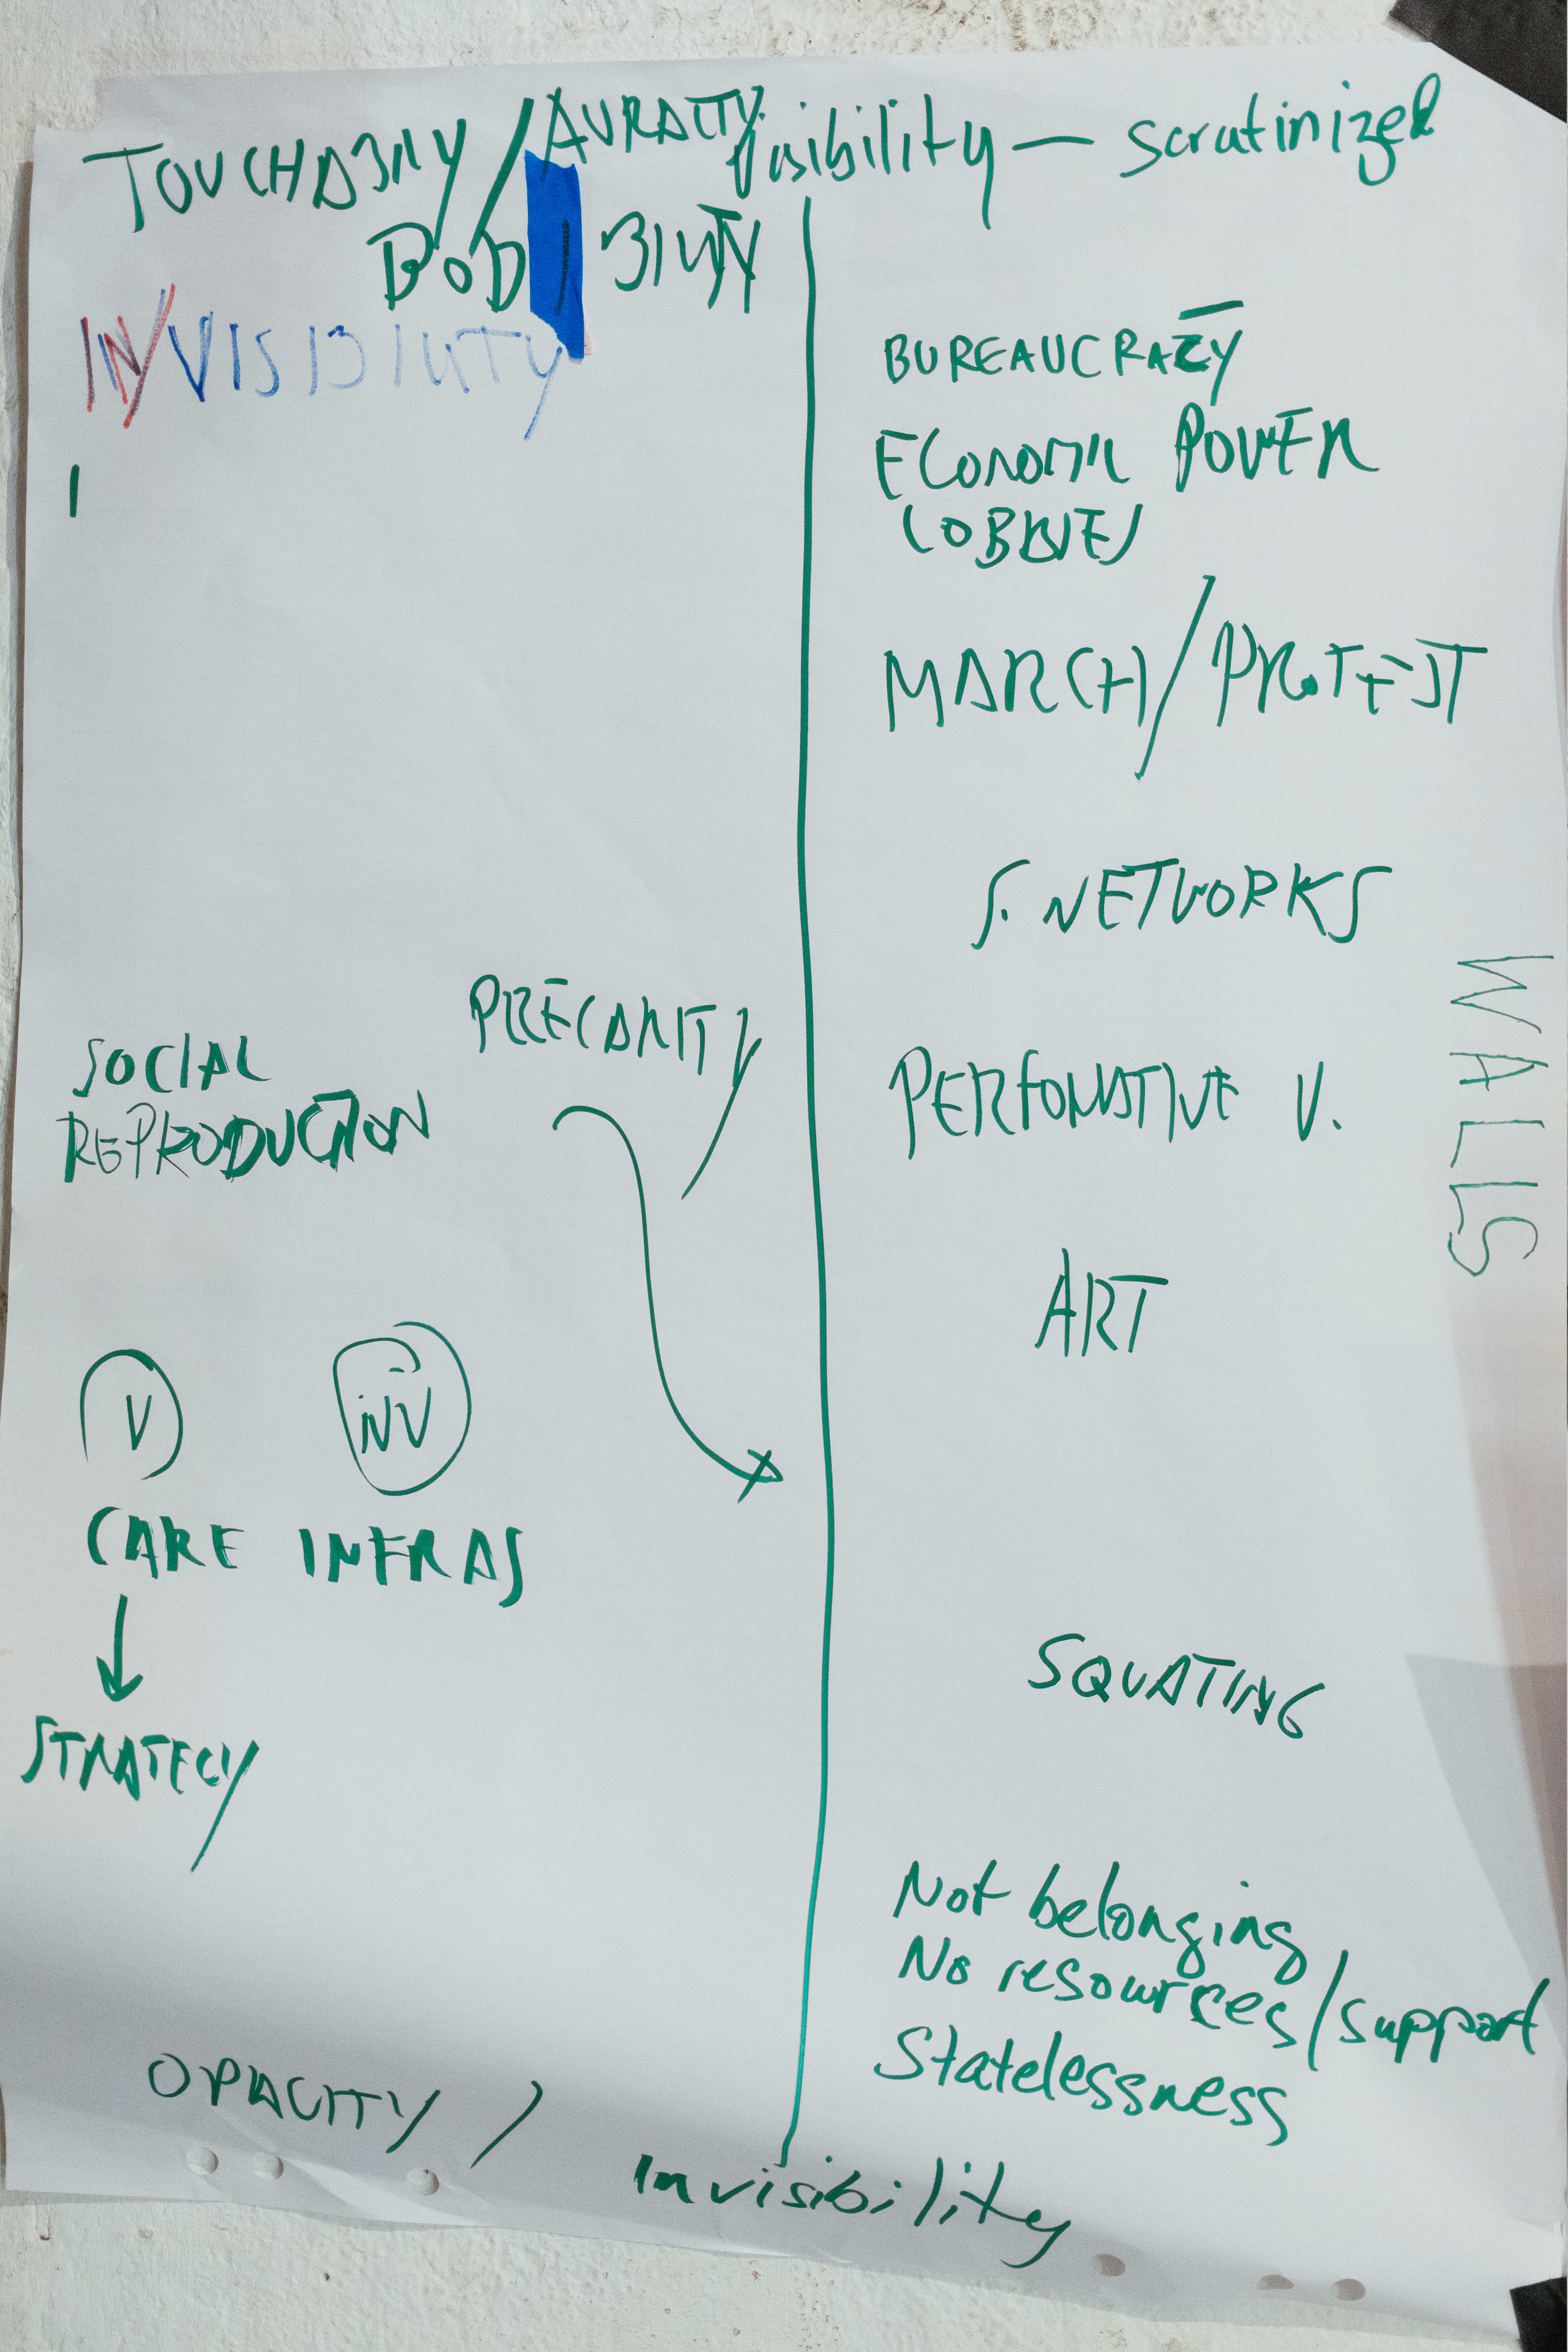 TOUCHABILITY / AURALITY
visibility — scrutinized
BODIBILITY
IN/VISIBILITY
BUREAUCRACY
ECONOMIC POWER
LOBBIES
MARCH/PROTEST
S. NETWORKS
WALLS
PRECARITY
SOCIAL
REPRODUCTION
PERFOMATIVE V.
ART
V INV
CARE INFRAS
↓
STRATEGY
SQUATING
Not belonging
No resources/support
Statelessness
OPACITY /
Invisibility